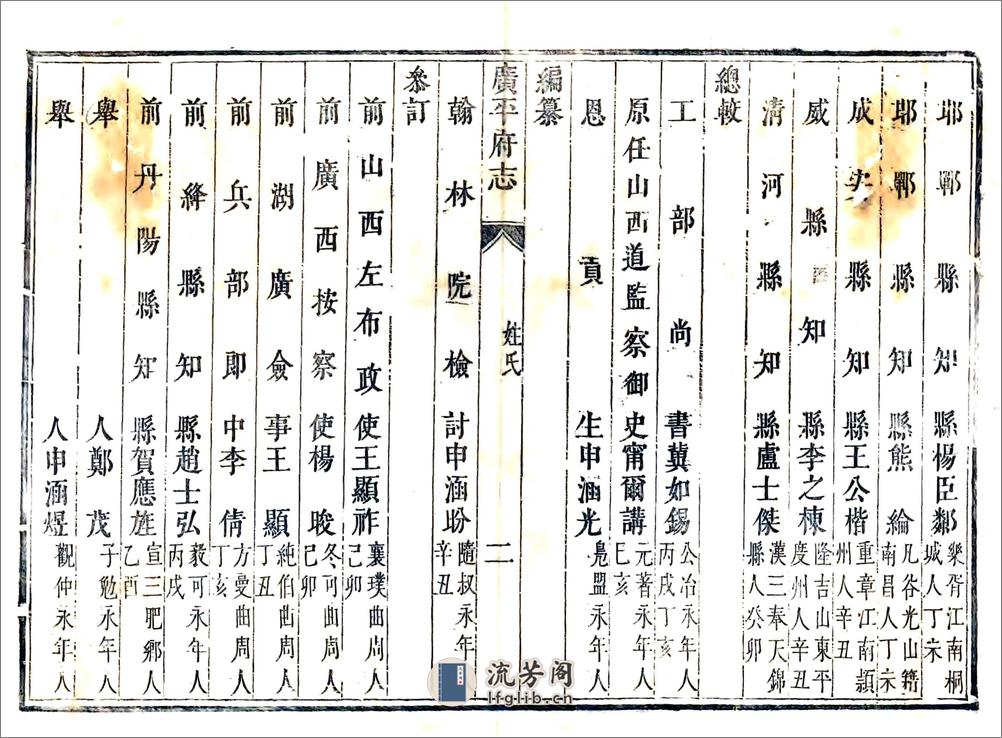 邯鄲縣知縣楊臣鄰樂胥江南桐城人丁未
邯鄲縣知縣熊綸凡谷光山籍南昌人丁未
成安縣知縣王公楷重章江南潁州人辛丑
威縣知縣李之棟隆吉山東平度州人辛丑
清河縣知縣盧士傑漢三奉天錦縣人癸卯
總較
工部尚書冀如錫公冶永年人丙戌丁亥
原任山西道監察御史甯爾講元著永年人己亥
恩貢生申涵光鳧盟永年人
編纂
廣平府志 姓氏 二
翰林院檢討申涵盼隨叔永年人辛丑
參訂
前山西左布政使王顯祚襄璞曲周人己卯
前廣西按察使楊晙冬可曲周人己卯
前湖廣僉事王顯純伯曲周人丁丑
前兵部郎中李倩方曼曲周人丁亥
前絳縣知縣趙士弘毅可永年人丙戌
前丹陽縣知縣賀應旌宣三肥鄉人乙酉
舉人鄭茂子勉永年人
舉人申涵煜觀仲永年人
流芳阁
lfglib.cn